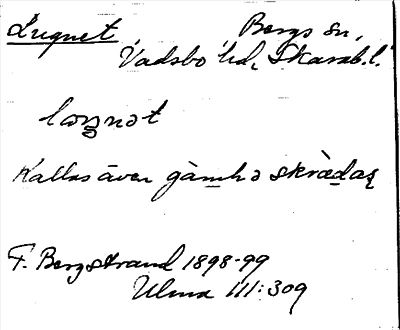 Lugnet, Bergs sn,
Vadsbo hd, Skarab.l.
Kallas även gàmhə skrædaʀ
F. Bergstrand 1898-99
Ulma 111:309